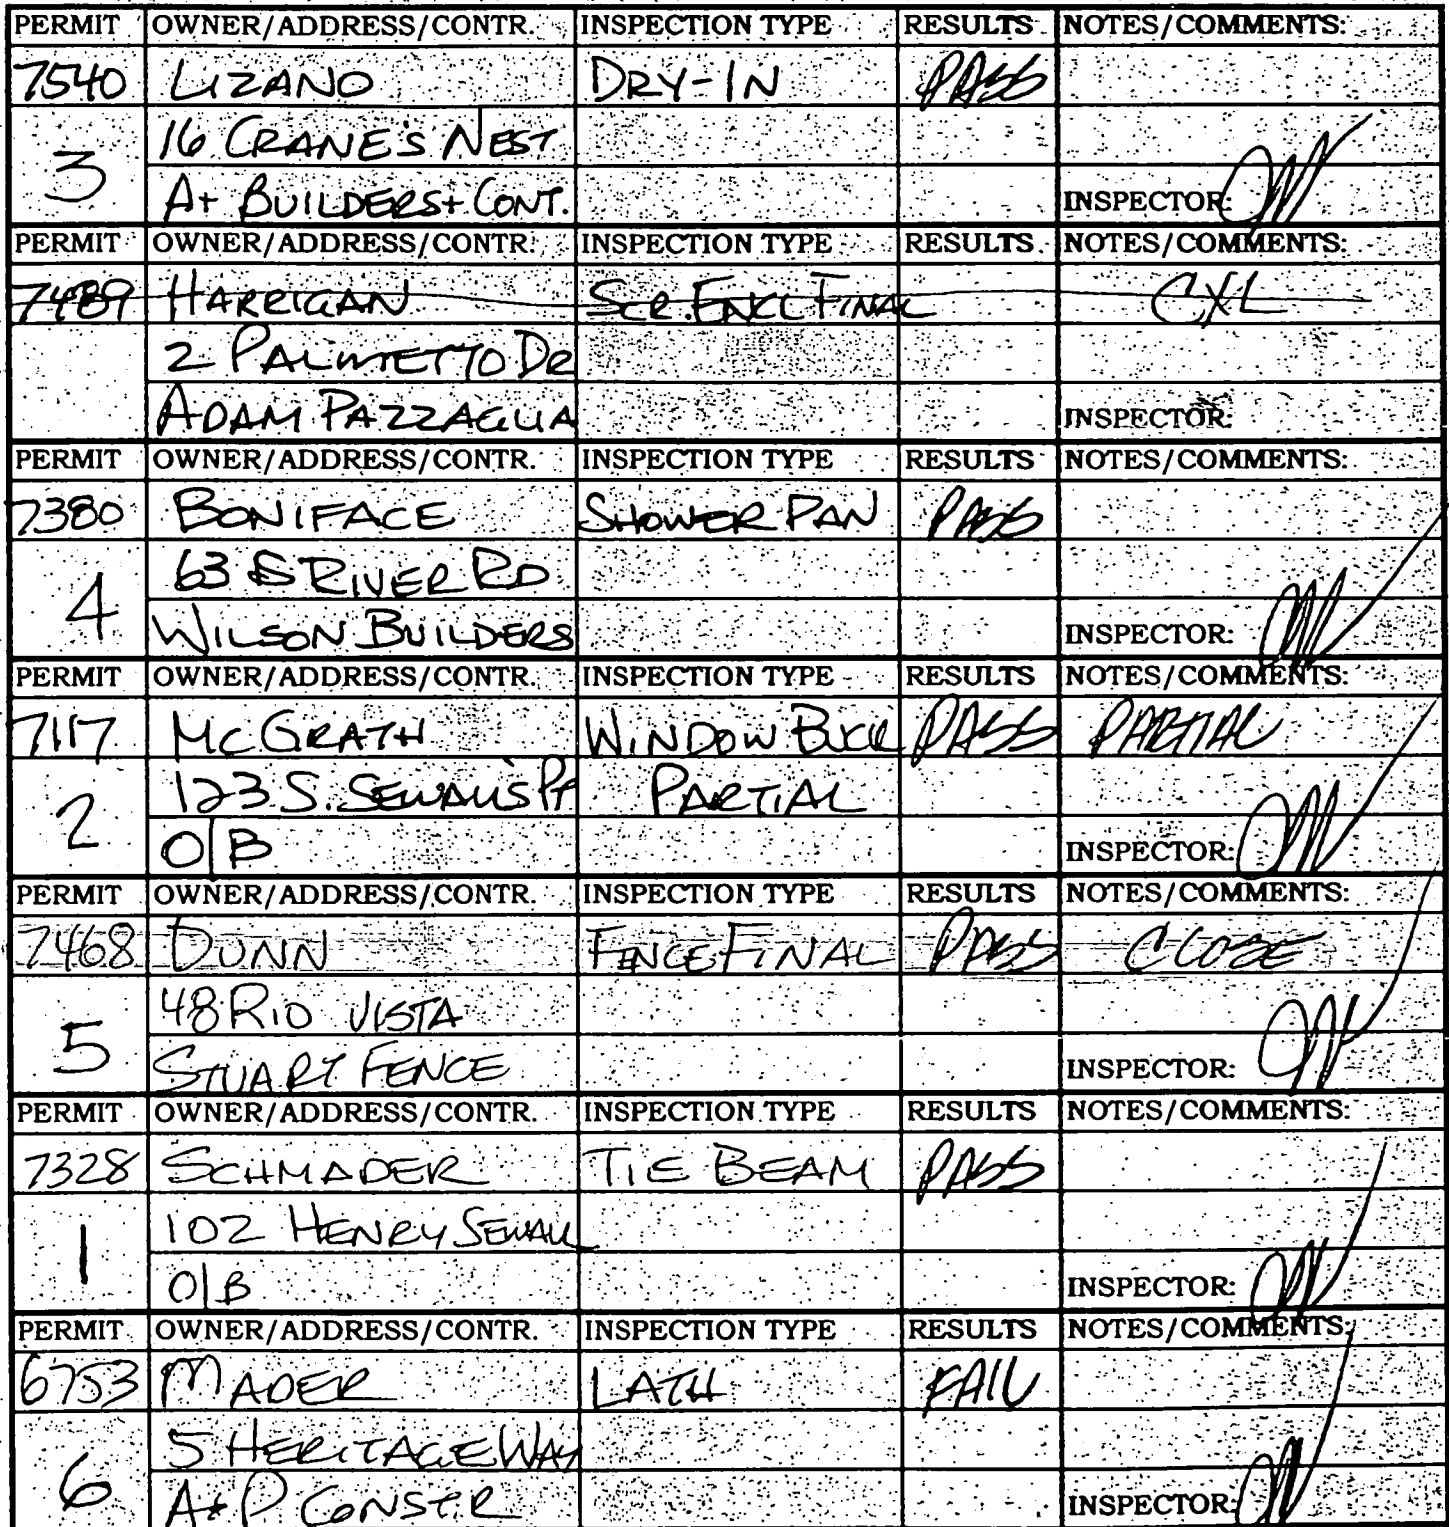 PERMIT OWNER/ADDRESS/CONTR. INSPECTION TYPE RESULTS NOTES/COMMENTS:
7540 LIZANO DRY-IN PASS
3 16 CRANE'S NEST
A+ BUILDERS + CONT. INSPECTOR:
PERMIT OWNER/ADDRESS/CONTR. INSPECTION TYPE RESULTS NOTES/COMMENTS:
7489 HARRIGAN SCR. ENCL FINAL CXL
2 PALMETTO DR
ADAM PAZZAGLIA INSPECTOR:
PERMIT OWNER/ADDRESS/CONTR. INSPECTION TYPE RESULTS NOTES/COMMENTS:
7380 BONIFACE SHOWER PAN PASS
4 63 S RIVER RD
WILSON BUILDERS INSPECTOR:
PERMIT OWNER/ADDRESS/CONTR. INSPECTION TYPE RESULTS NOTES/COMMENTS:
7117 MCGRATH WINDOW BUCK PASS PARTIAL
2 123 S. SEWALL'S PT PARTIAL
O/B INSPECTOR:
PERMIT OWNER/ADDRESS/CONTR. INSPECTION TYPE RESULTS NOTES/COMMENTS:
7468 DUNN FENCE FINAL PASS CLOSE
5 48 RIO VISTA
STUART FENCE INSPECTOR:
PERMIT OWNER/ADDRESS/CONTR. INSPECTION TYPE RESULTS NOTES/COMMENTS:
7328 SCHMADER TIE BEAM PASS
1 102 HENRY SEWALL
O/B INSPECTOR:
PERMIT OWNER/ADDRESS/CONTR. INSPECTION TYPE RESULTS NOTES/COMMENTS:
6753 MADER LATH FAIL
6 5 HERITAGE WAY
A+P CONSTR INSPECTOR: